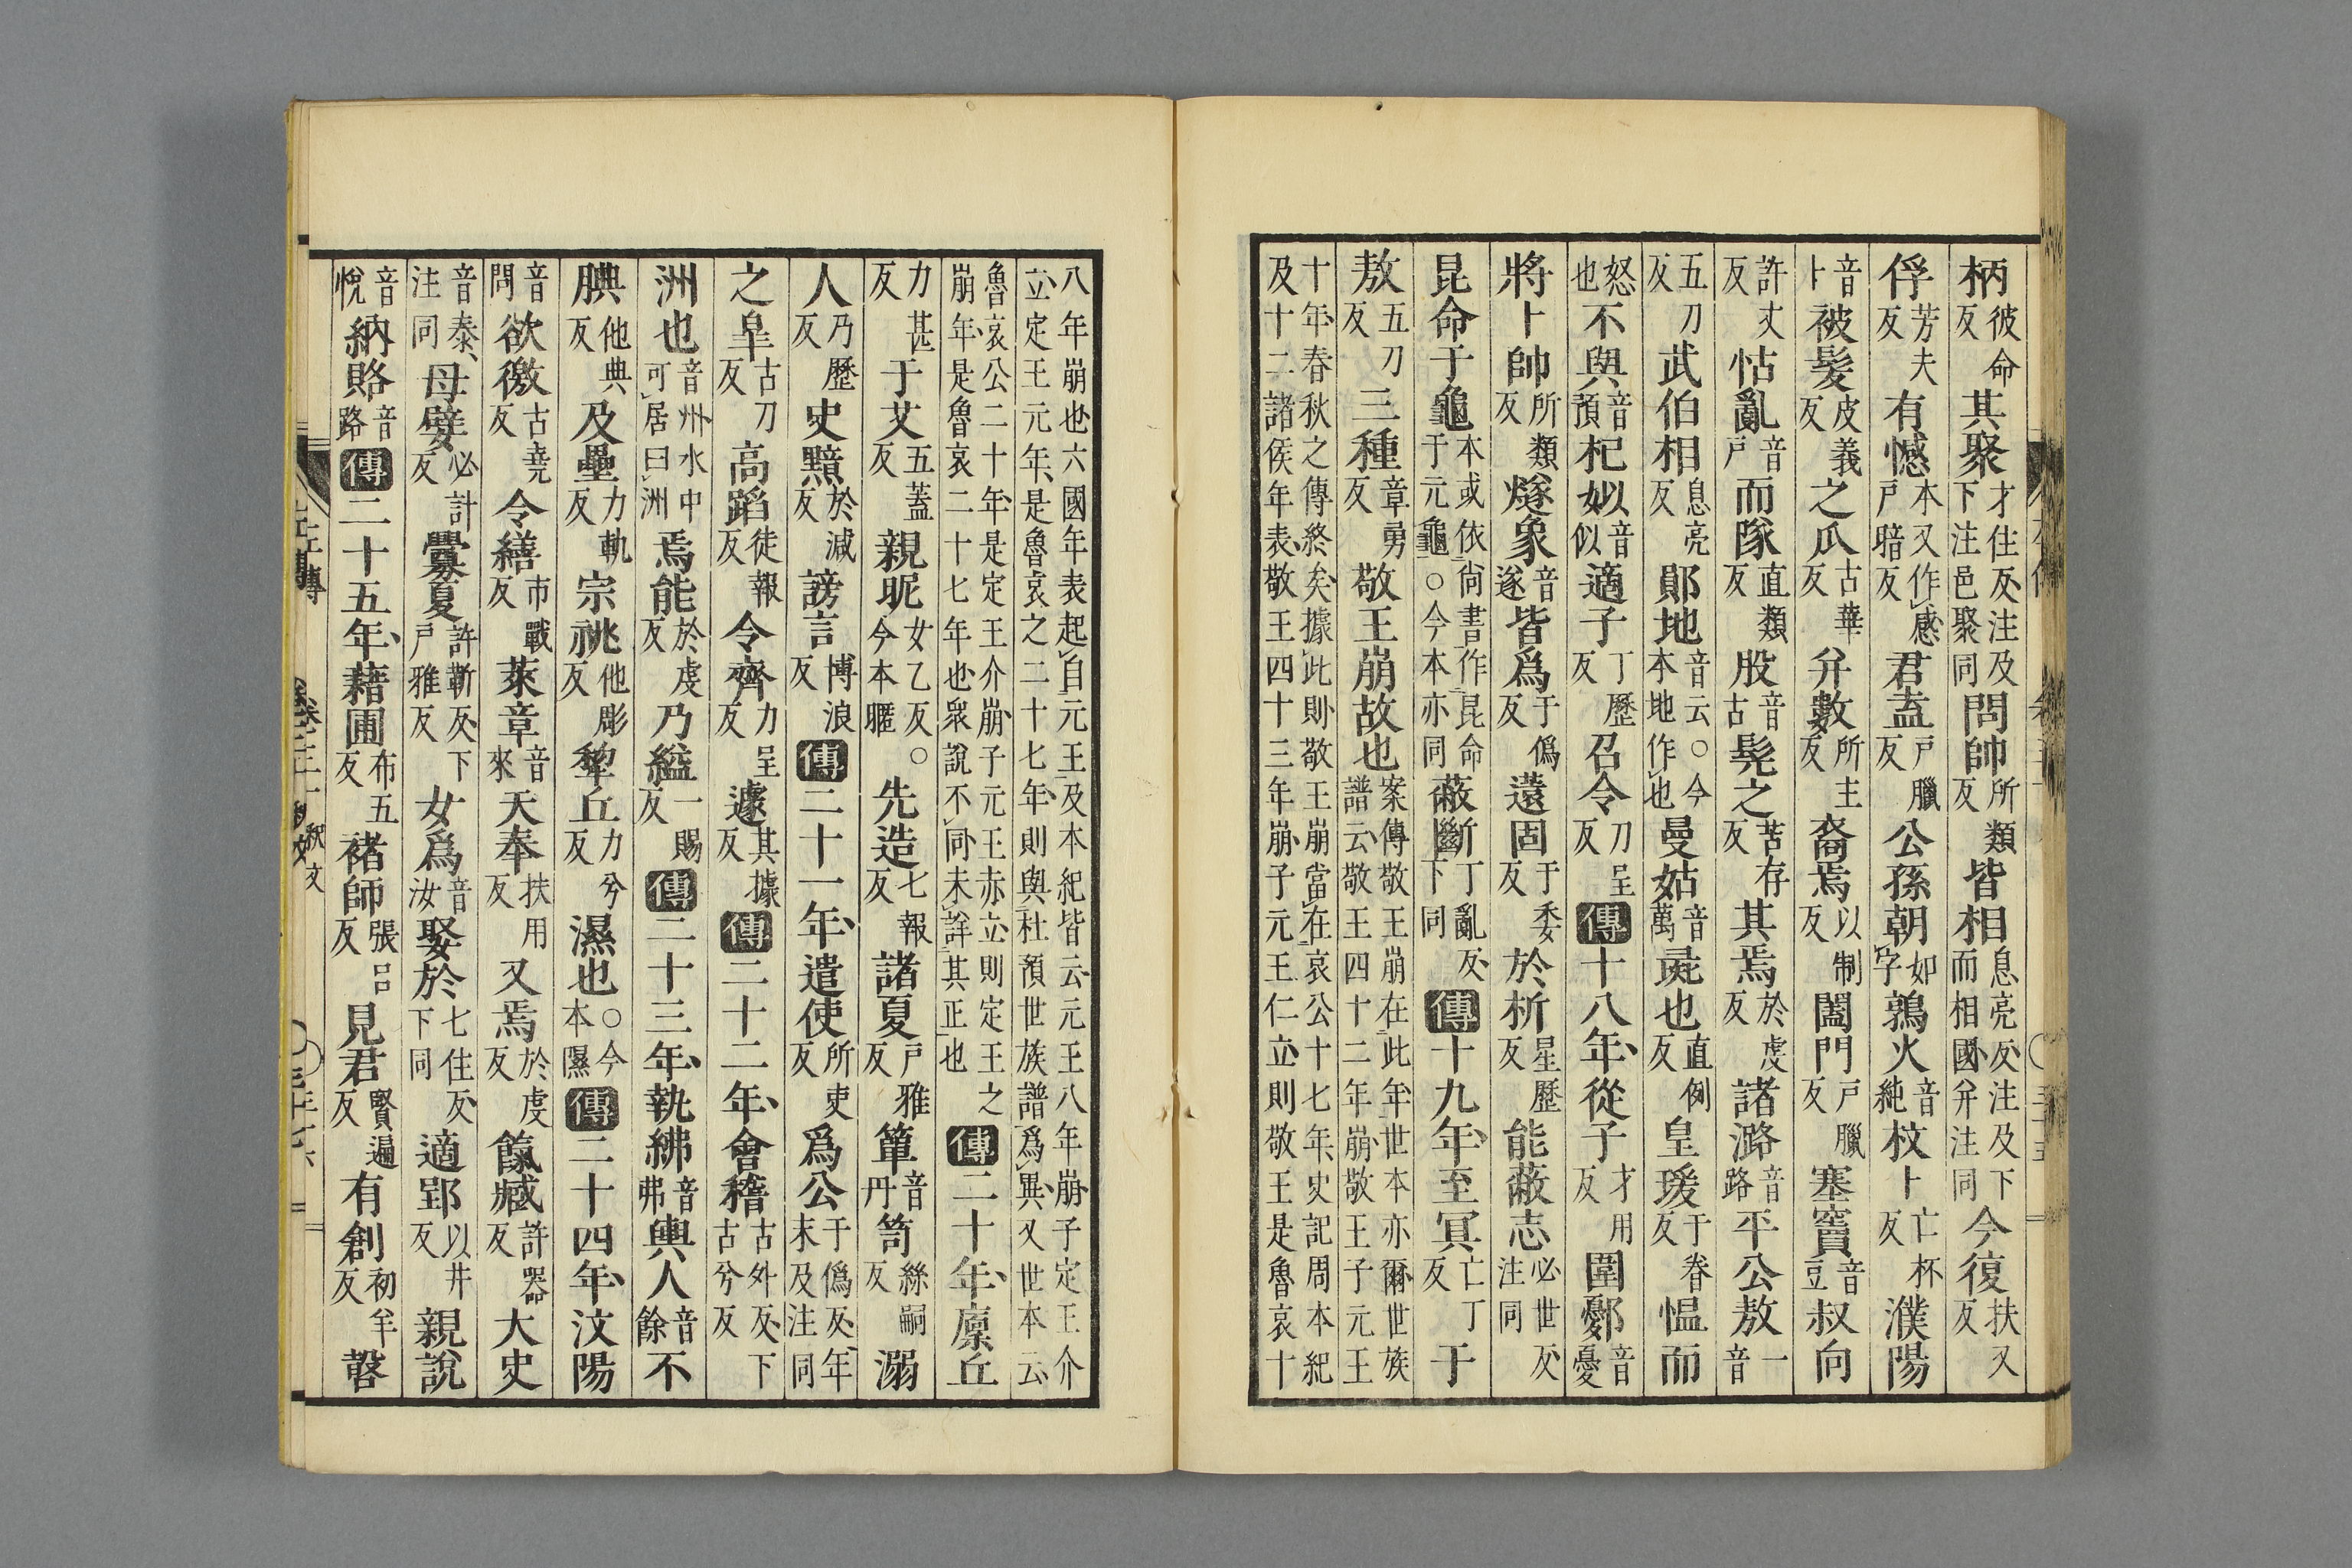 柄彼命反其聚才住反注及下注邑聚同問帥所類反皆相息亮反注及下而相國并注同今復扶又反
俘芳夫反有憾本又作感戶暗反君盍戶臘反公孫朝如字鶉火音純枚卜亡杯反濮陽
音卜被髮皮義反之瓜古華反并數所主反裔焉以制反闔門戶臘反塞竇音豆叔向
許丈反怙亂音戶而隊直類反股音古髡之苦存反其焉於虔反諸潞音路平公敖一音
五刀反武伯相息亮反鄖地音云○今本地作也曼姑音萬彘也直例反皇瑗于眷反慍而
怒也不與音預杞姒音似適子丁歷反召令刀呈反傳十八年從子才用反圍鄾音憂
將卜帥所類反燧象音遂皆爲于僞反薳固于委反於析星歷反能蔽志必世反注同
昆命于龜本或依尚書作昆命于元龜○今本亦同蔽斷丁亂反下同傳十九年至冥亡丁反于
敖五刀反三種章勇反敬王崩故也案傳敬王崩在此年世本亦爾世族譜云敬王四十二年崩敬王子元王
十年春秋之傳終矣據此則敬王崩當在哀公十七年史記周本紀及十二諸侯年表敬王四十三年崩子元王仁立則敬王是魯哀十
八年崩也六國年表起自元王及本紀皆云元王八年崩子定王介立定王元年是魯哀之二十七年則與杜預世族譜爲異又世本云
魯哀公二十年是定王介崩子元王赤立則定王之崩年是魯哀二十七年也衆說不同未詳其正也傳二十年廩丘
力甚反于艾五蓋反親昵女乙反○今本暱先造七報反諸夏戶雅反簞音丹笥絲嗣反溺
人乃歷反史黯於減反謗言博浪反傳二十一年遣使所吏反爲公于僞反年末及注同
之臯古刀反高蹈徒報反令齊力呈反遽其據反傳二十二年會稽古外反下古兮反
洲也音州水中可居曰洲焉能於虔反乃縊一賜反傳二十三年執紼音弗輿人音餘不
腆他典反及壘力軌反宗祧他彫反犂丘力兮反濕也○今本隰傳二十四年汶陽
音問欲徼古堯反令繕市戰反萊章音來天奉扶用反又焉於虔反餼臧許器反大史
音泰注同母嬖必計反釁夏許靳反下戶雅反女爲音汝娶於七住反下同適郢以井反親說
音悅納賂音路傳二十五年藉圃布五反褚師張呂反見君賢遍反有創初羊反磬